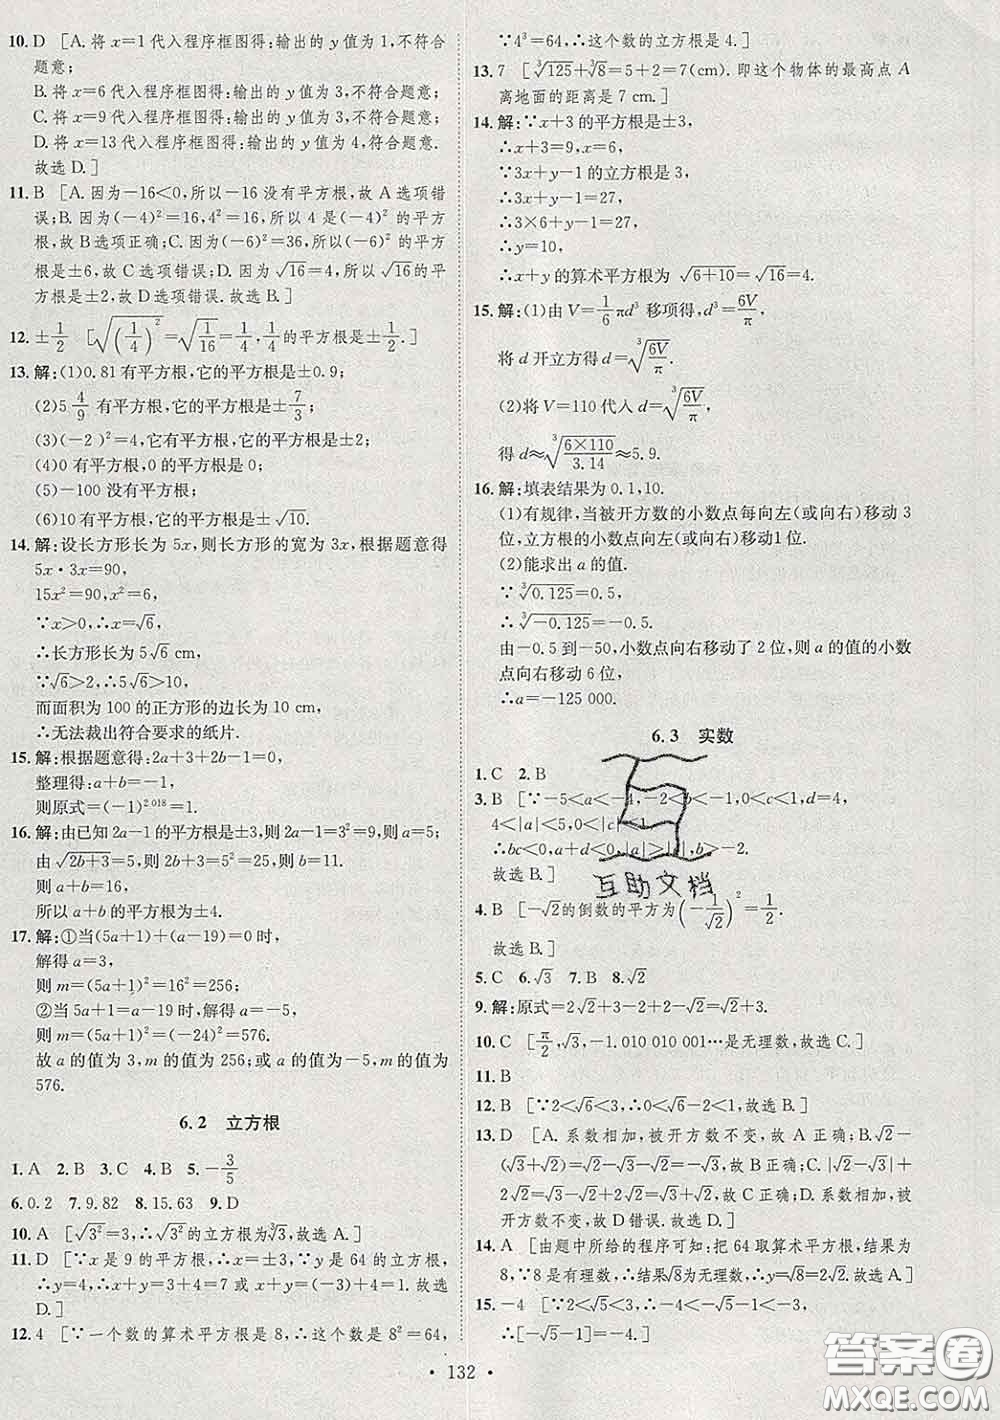 10. D [A. 将 x=1 代入程序框图得:输出的 y 值为 1,不符合
题意;
B. 将 x=6 代入程序框图得:输出的 y 值为 3,不符合题意;
C. 将 x=9 代入程序框图得:输出的 y 值为 3,不符合题意;
D. 将 x=13 代入程序框图得:输出的 y 值为 4,符合题意.
故选 D.]
11. B [A. 因为-16<0,所以-16 没有平方根,故 A 选项错
误;B. 因为(-4)²=16,4²=16,所以 4 是(-4)² 的平方
根,故 B 选项正确;C. 因为(-6)²=36,所以(-6)² 的平方
根是±6,故 C 选项错误;D. 因为√16=4,所以√16的平方
根是±2,故 D 选项错误.故选 B.]
12. ±1/2 [√(1/4)²=√(1/16)=1/4,1/4的平方根是±1/2.]
13. 解:(1)0.81 有平方根,它的平方根是±0.9;
(2)5 4/9 有平方根,它的平方根是±7/3;
(3)(-2)²=4,它有平方根,它的平方根是±2;
(4)0 有平方根,0 的平方根是 0;
(5)-100 没有平方根;
(6)10 有平方根,它的平方根是±√10.
14. 解:设长方形长为 5x,则长方形的宽为 3x,根据题意得
5x·3x=90,
15x²=90,x²=6,
∵x>0,∴x=√6,
∴长方形长为 5√6 cm,
∵√6>2,∴5√6>10,
而面积为 100 的正方形的边长为 10 cm,
∴无法裁出符合要求的纸片.
15. 解:根据题意得:2a+3+2b-1=0,
整理得:a+b=-1,
则原式=(-1)2 018=1.
16. 解:由已知 2a-1 的平方根是±3,则 2a-1=3²=9,则 a=5;
由√2b+3=5,则 2b+3=5²=25,则 b=11.
则 a+b=16,
所以 a+b 的平方根为±4.
17. 解:①当(5a+1)+(a-19)=0 时,
解得 a=3,
则 m=(5a+1)²=16²=256;
②当 5a+1=a-19 时,解得 a=-5,
则 m=(5a+1)²=(-24)²=576.
故 a 的值为 3,m 的值为 256;或 a 的值为-5,m 的值为
576.
6.2 立方根
1. A 2. B 3. C 4. B 5. -3/5
6. 0.2 7. 9.82 8. 15.63 9. D
10. A [√3²=3,∴√3²的立方根为∛3,故选 A.]
11. D [∵x 是 9 的平方根,∴x=±3,∵y 是 64 的立方根,
∴y=4,∴x+y=3+4=7 或 x+y=(-3)+4=1. 故选
D.]
12. 4 [∵一个数的算术平方根是 8,∴这个数是 8²=64,
∵4³=64,∴这个数的立方根是 4.]
13. 7 [∛125+∛8=5+2=7(cm). 即这个物体的最高点 A
离地面的距离是 7 cm.]
14. 解:∵x+3 的平方根是±3,
∴x+3=9,x=6,
∵3x+y-1 的立方根是 3,
∴3x+y-1=27,
∴3×6+y-1=27,
∴y=10,
∴x+y 的算术平方根为 √6+10=√16=4.
15. 解:(1)由 V=1/6 πd³ 移项得,d³=6V/π,
将 d 开立方得 d=∛(6V/π).
(2)将 V=110 代入 d=∛(6V/π),
得 d≈∛(6×110/3.14)≈5.9.
16. 解:填表结果为 0.1,10.
(1)有规律,当被开方数的小数点每向左(或向右)移动 3
位,立方根的小数点向左(或向右)移动1位.
(2)能求出 a 的值.
∵∛0.125=0.5,
∴∛-0.125=-0.5.
由-0.5 到-50,小数点向右移动了 2 位,则 a 的值的小数
点向右移动 6 位,
∴a=-125 000.
6.3 实数
1. C 2. B
3. B [∵-5<a<-4,-2<b<-1,0<c<1,d=4,
4<|a|<5,0<|c|<1,
∴bc<0,a+d<0,|a|>|d|,b>-2.
故选 B.]
互助文档
4. B [-√2的倒数的平方为(-1/√2)²=1/2.
故选 B.]
5. C 6. √3 7. B 8. √2
9. 解:原式=2√2+3-2+2-√2=√2+3.
10. C [π/2,√3,-1.010 010 001…是无理数,故选 C.]
11. B
12. B [∵2<√6<3,∴0<√6-2<1,故选 B.]
13. D [A. 系数相加,被开方数不变,故 A 正确;B. √2-
(√3+√2)=√2-√3-√2=-√3,故 B 正确;C. |√2-√3|+
2√2=√3-√2+2√2=√3+√2,故 C 正确;D. 系数相加,被
开方数不变,故 D 错误. 故选 D.]
14. A [由题中所给的程序可知:把 64 取算术平方根,结果为
8,∵8 是有理数,∴结果√8为无理数,∴y=√8=2√2. 故选 A.]
15. -4 [∵2<√5<3,∴-4<-√5-1<-3,
∴[-√5-1]=-4.]
132
答案圈
MXQE.COM